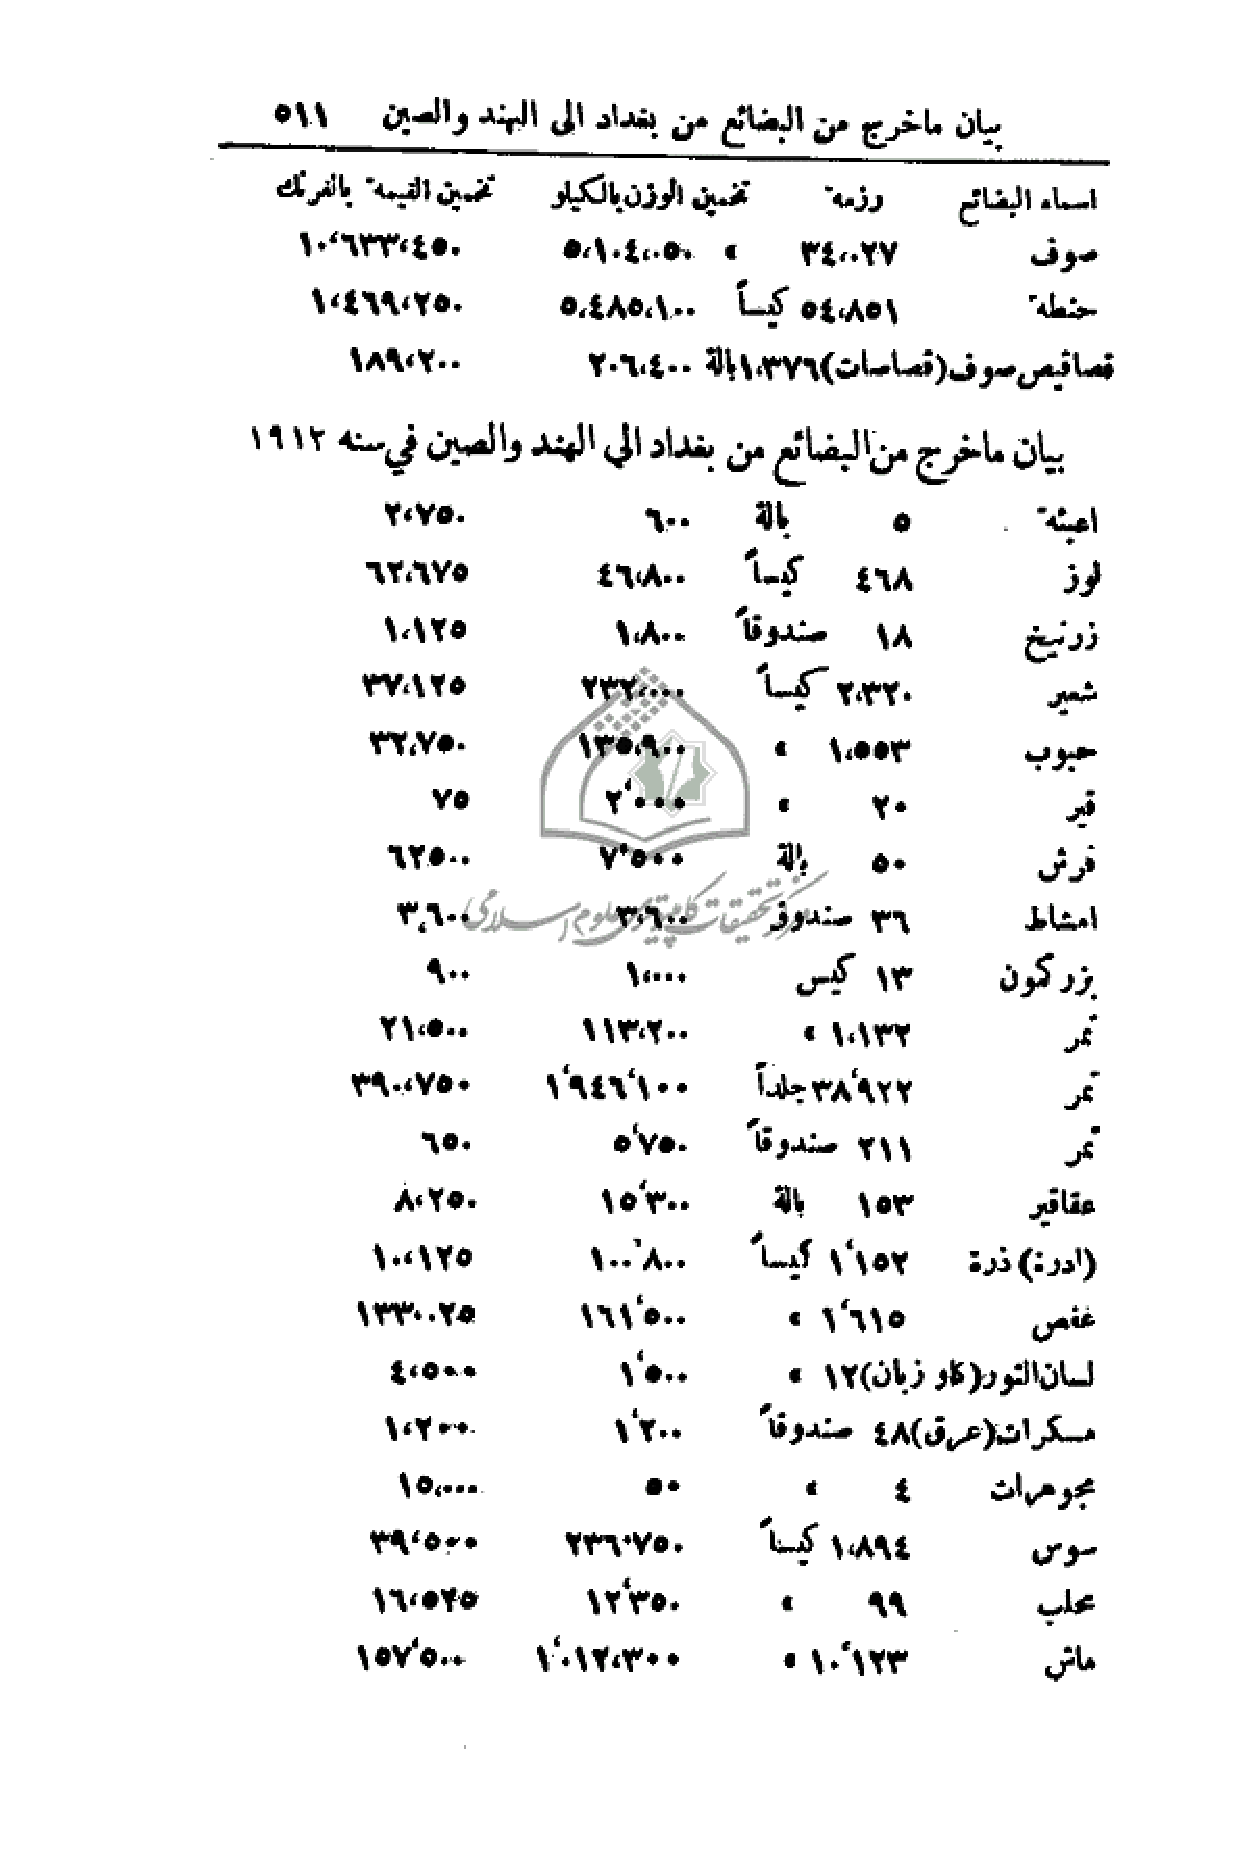 بيان ماخرج من البضائع من بغداد الى الهند والصين ٥١١
اسماء البضائع رزمة تخمين الوزن بالكيلو تخمين القيمة بالفرنك
صوف ٣٤،٠٢٧ » ٥،١٠٤،٠٥٠ ١٠،٦٣٣،٤٥٠
حنطة ٥٤،٨٥١ كيساً ٥،٤٨٥،١٠٠ ١،٤٦٩،٢٥٠
قصاقيص صوف (قصاصات) ١،٣٧٦ بالة ٢٠٦،٤٠٠ ١٨٩،٢٠٠
بيان ماخرج من البضائع من بغداد الي الهند والصين في سنه ١٩١٢
اعبئة ٥ بالة ٦٠٠ ٢،٧٥٠
لوز ٤٦٨ كيساً ٤٦،٨٠٠ ٦٢،٦٧٥
زرنيخ ١٨ صندوقاً ١،٨٠٠ ١،١٢٥
شعير ٢،٣٢٠ كيساً ٢٣٢،٠٠٠ ٣٧،١٢٥
حبوب ١،٥٥٣ » ١٣٥،٩٠٠ ٣٢،٧٥٠
قير ٢٠ » ٢،٠٠٠ ٧٥
فرش ٥٠ بالة ٧،٥٠٠ ٦٢٥٠٠
امشاط ٣٦ صندوق ٣،٦٠٠ ٣،٦٠٠
مركز تحقيقات كامپيوترى علوم اسلامى
بزر كمون ١٣ كيس ١،٠٠٠ ٩٠٠
تمر ١،١٣٢ » ١١٣،٢٠٠ ٢١،٥٠٠
تمر ٣٨،٩٢٢ جلداً ١،٩٤٦،١٠٠ ٣٩٠،٧٥٠
تمر ٢١١ صندوقاً ٥،٧٥٠ ٦٥٠
عقاقير ١٥٣ بالة ١٥،٣٠٠ ٨،٢٥٠
(ادرة) ذرة ١،١٥٢ كيساً ١٠٠،٨٠٠ ١٠،١٢٥
عفص ١،٦١٥ » ١٦١،٥٠٠ ١٣٣٠٠٢٥
لسان الثور (كاو زبان) ١٢ » ١،٥٠٠ ٤،٥٠٠
مسكرات (عرق) ٤٨ صندوقاً ١،٢٠٠ ١،٢٠٠
مجوهرات ٤ » ٥٠ ١٥،٠٠٠
سوس ١،٨٩٤ كيساً ٢٣٦٠٧٥٠ ٣٩،٥٠٠
محلب ٩٩ » ١٢،٣٥٠ ١٦،٥٢٥
ماش ١٠،١٢٣ » ١،٠١٢،٣٠٠ ١٥٧،٥٠٠